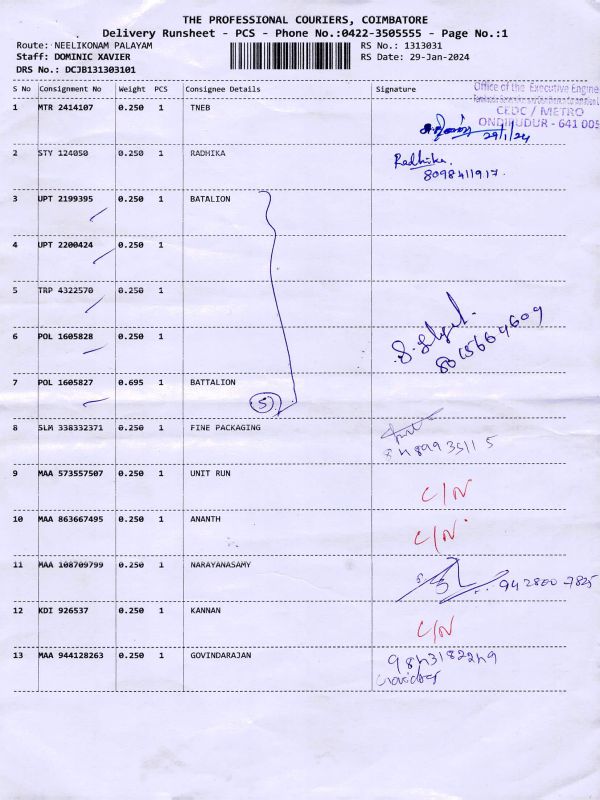 THE PROFESSIONAL COURIERS, COIMBATORE
Delivery Runsheet - PCS - Phone No.:0422-3505555 - Page No.:1
Route: NEELIKONAM PALAYAM
RS No.: 1313031
Staff: DOMINIC XAVIER
RS Date: 29-Jan-2024
DRS No.: DCJB131303101
S No Consignment No Weight PCS Consignee Details Signature
Office of the Executive Engine
CEDC / METRO
ONDIPUDUR - 641 005
1 MTR 2414107 0.250 1 TNEB
29/1/24
2 STY 124050 0.250 1 RADHIKA Radhika.
8098411917.
3 UPT 2199395 0.250 1 BATALION
4 UPT 2200424 0.250 1
5 TRP 4322570 0.250 1
6 POL 1605828 0.250 1
8015664609
7 POL 1605827 0.695 1 BATTALION
5
8 SLM 338332371 0.250 1 FINE PACKAGING
9 MAA 573557507 0.250 1 UNIT RUN C/N
10 MAA 863667495 0.250 1 ANANTH C/N
11 MAA 108709799 0.250 1 NARAYANASAMY
942800 7825
12 KDI 926537 0.250 1 KANNAN C/N
13 MAA 944128263 0.250 1 GOVINDARAJAN